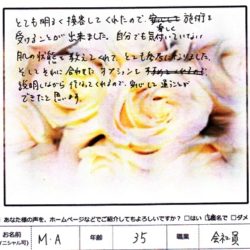 とても明るく接客してくれたので、楽しく施術を
受けることが出来ました。自分でも気付いていない
肌の状態を教えてくれて、とても参考になりました。
そしてそれに合わせたオプションも
説明しながら行なってくれるので、安心して通うことが
できたと思います。
あなた様の声を、ホームページなどでご紹介してもよろしいですか？ □はい □匿名で □ダメ
お名前
(イニシャル可)
M・A
年齢
35
職業
会社員